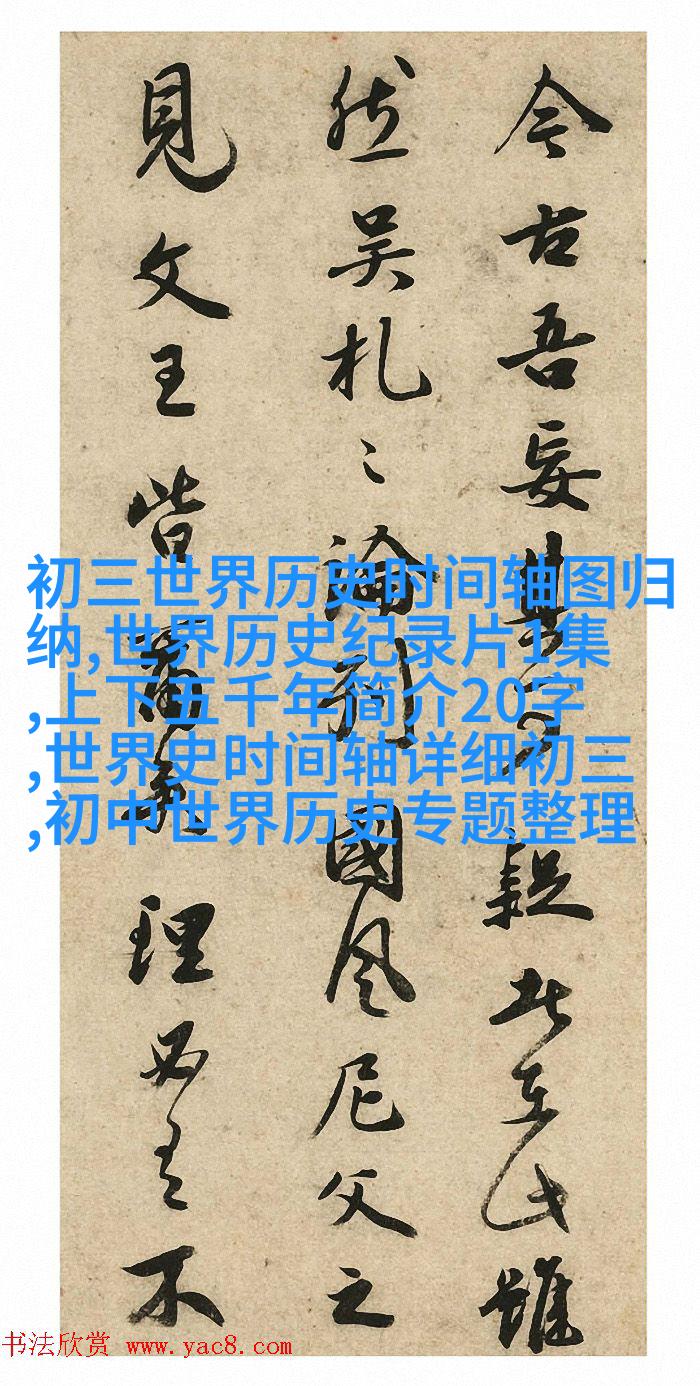 今古吾妄疑此在此雖
然吴札〻論列國風尼父之
見文王皆理必有不
初三世界历史时间轴图归
纳,世界历史纪录片1集
,上下五千年简介20字
,世界史时间轴详细初三
,初中世界历史专题整理
书法欣赏 www.yac8.com